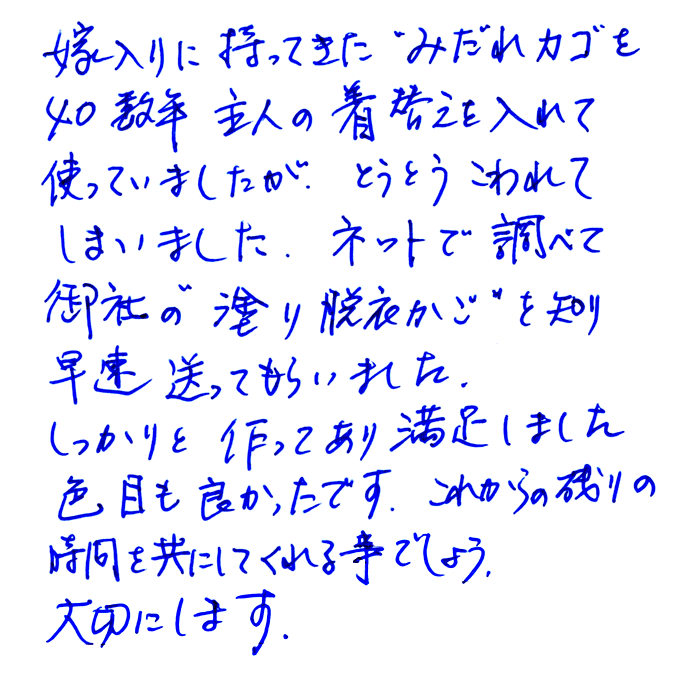 嫁入りに持ってきた"みだれカゴを
40数年主人の着替えを入れて
使っていましたが. とうとうこわれて
しまいました. ネットで調べて
御社の"塗り脱衣かご"を知り
早速送ってもらいました.
しっかりと作ってあり満足しました
色目も良かったです. これからの残りの
時間を共にしてくれる事でしょう.
大切にします.